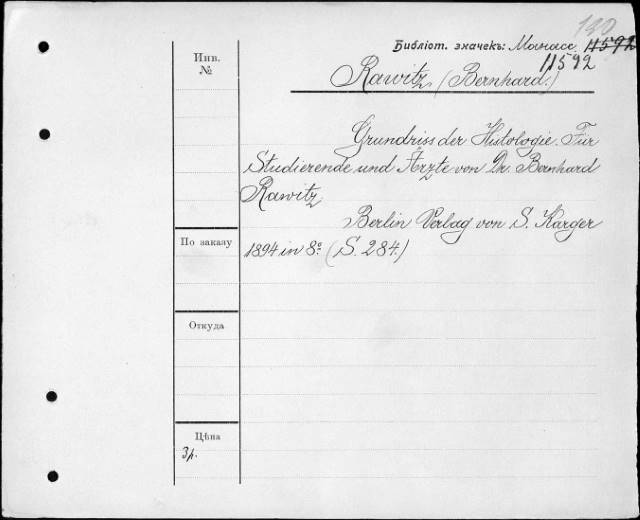 130
Библіот. значекъ: Манасс. 11592
11592
Инв.
№
Rawitz, (Bernhard.)
Grundriss der Histologie. Für
Studierende und Ärzte von Dr. Bernhard
Rawitz
Berlin Verlag von S. Karger
1894 in 8º (S. 284.)
По заказу
Откуда
Цѣна
3р.